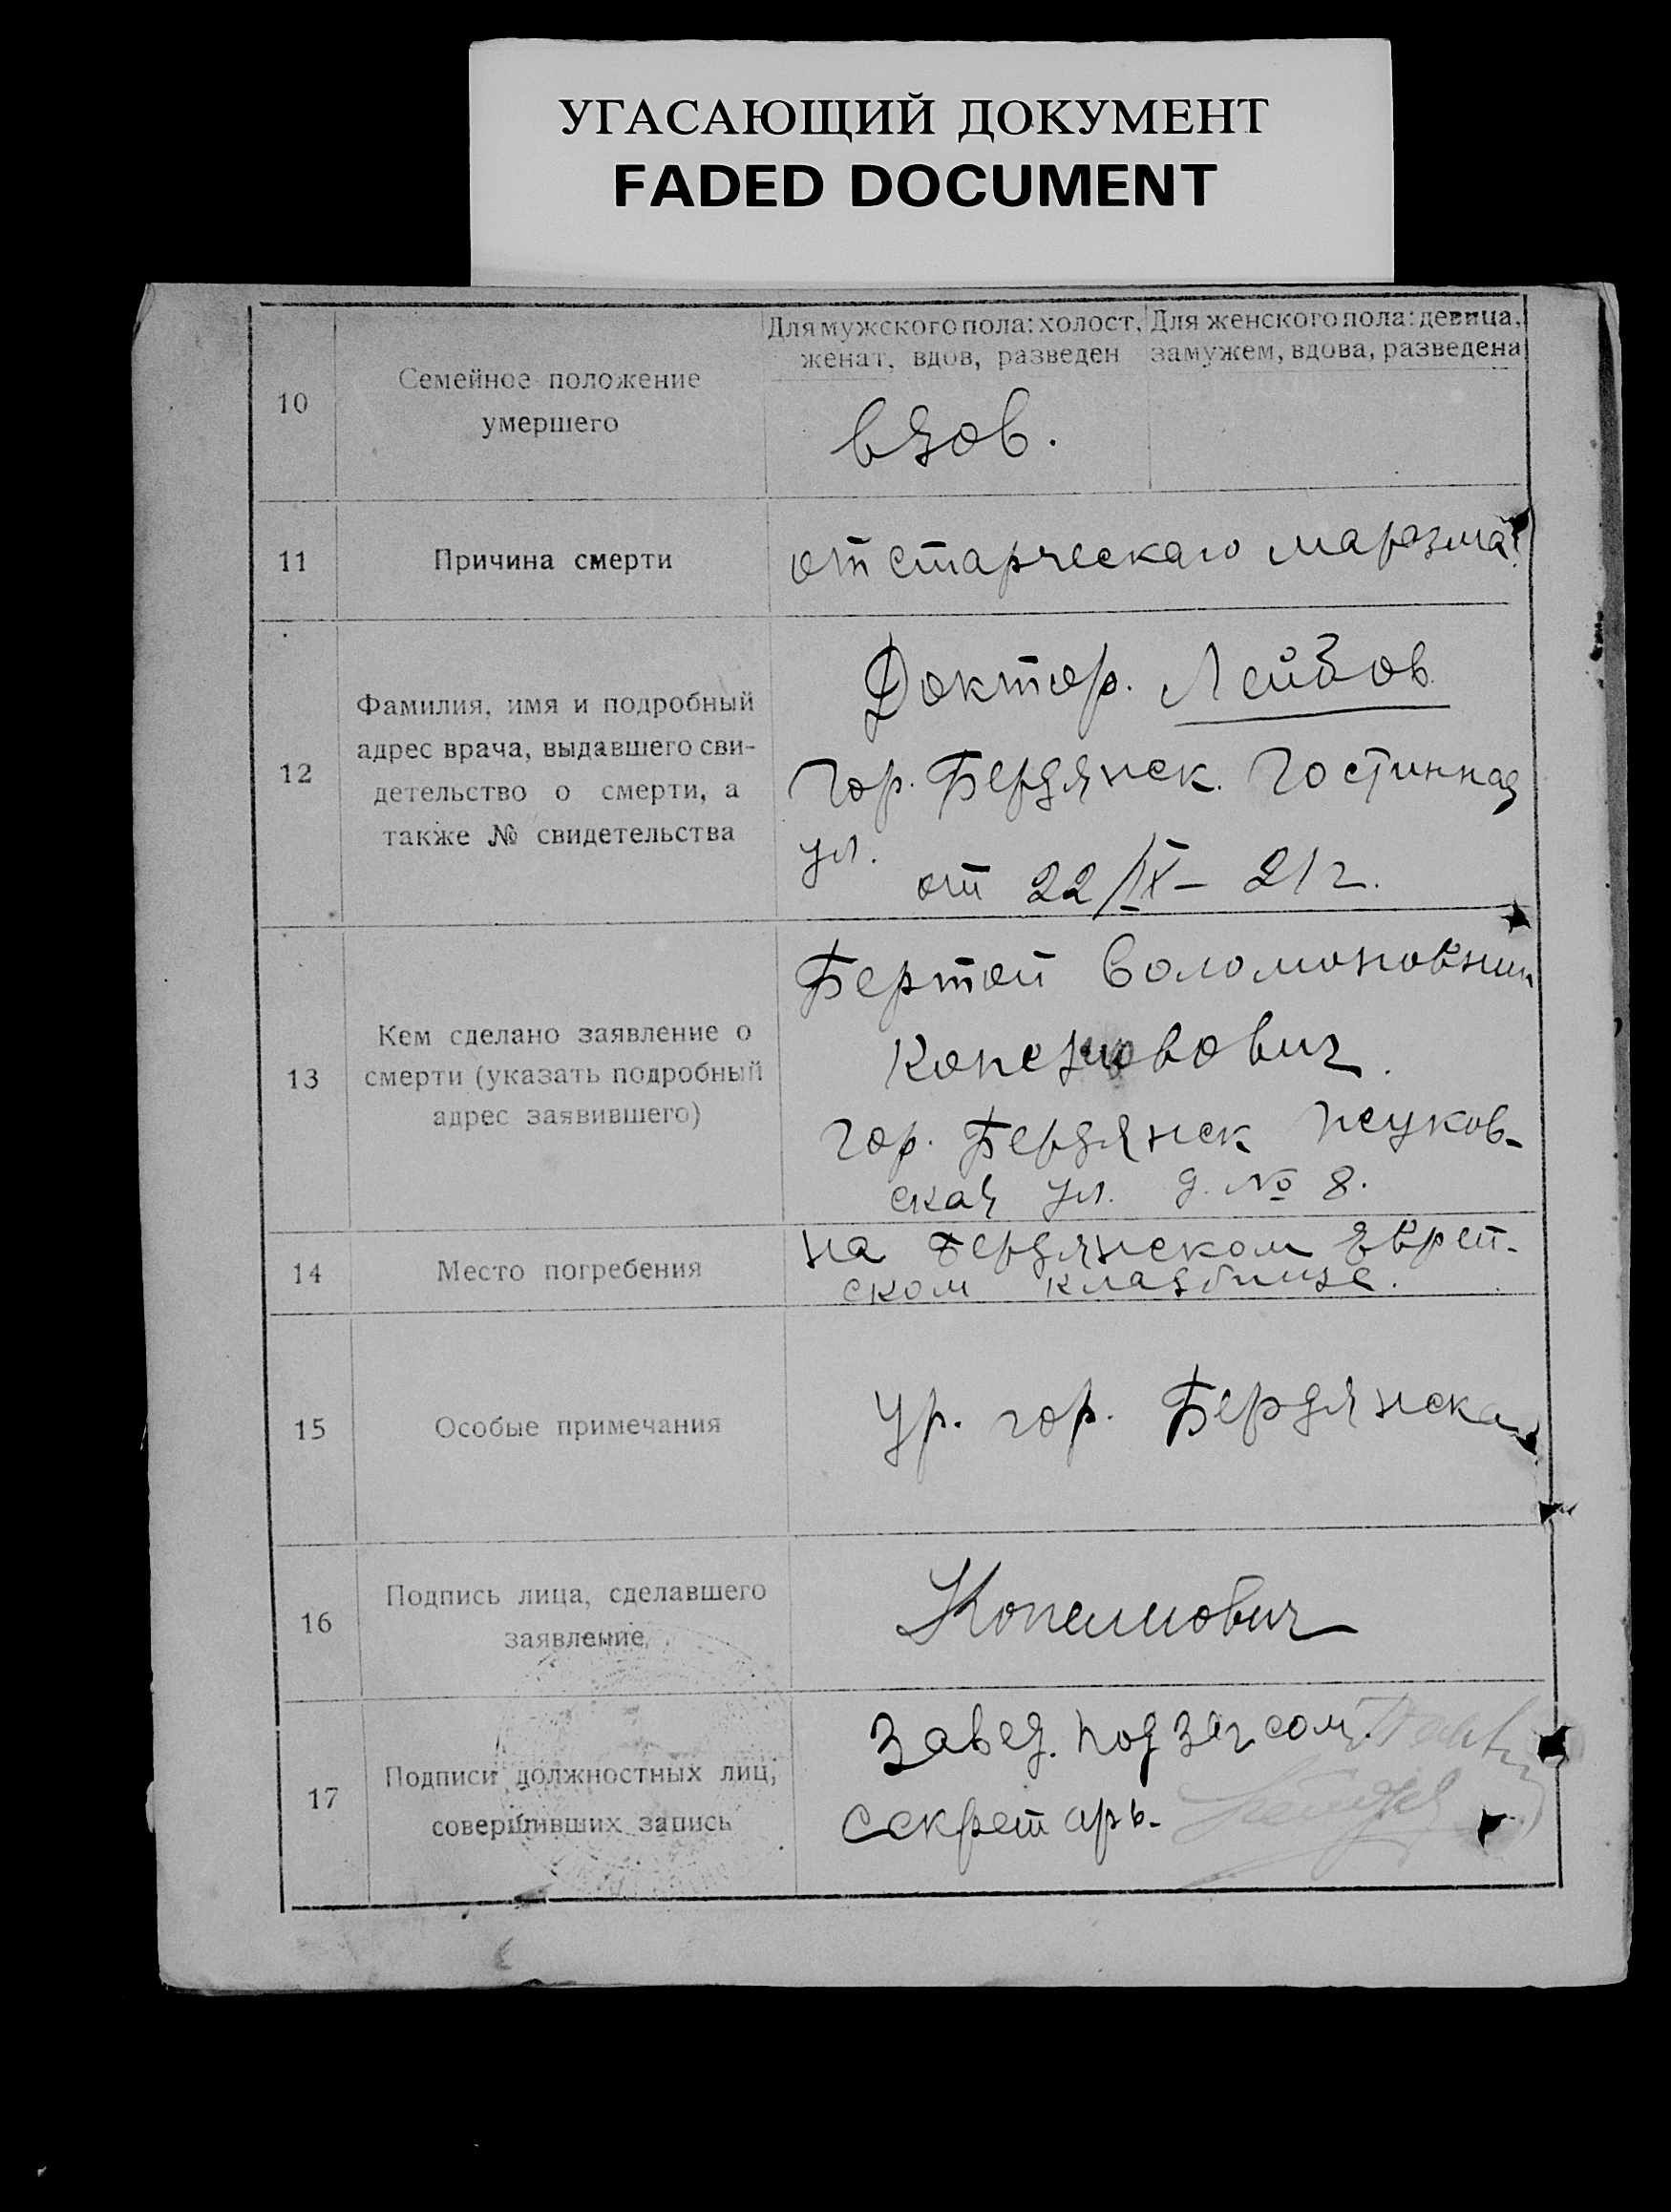 УГАСАЮЩИЙ ДОКУМЕНТ
FADED DOCUMENT
10
Семейное положение
умершего
Для мужского пола: холост,
женат, вдов, разведен
Для женского пола: девица,
замужем, вдова, разведена
вдов.
11
Причина смерти
от старческаго маразма
12
Фамилия, имя и подробный
адрес врача, выдавшего сви-
детельство о смерти, а
также № свидетельства
Доктор. Лейбов
гор. Бердянск. Гостинная
ул.
от 22/IX – 21 г.
13
Кем сделано заявление о
смерти (указать подробный
адрес заявившего)
Бертой Соломоновной
гор. Бердянск
ская ул. д. № 8.
14
Место погребения
на Бердянском Еврей-
ском кладбище.
15
Особые примечания
Ур. гор. Бердянска
16
Подпись лица, сделавшего
заявление
Копелиович
17
Подписи должностных лиц,
совершивших запись
Завед. подзагсом.
Секретарь-